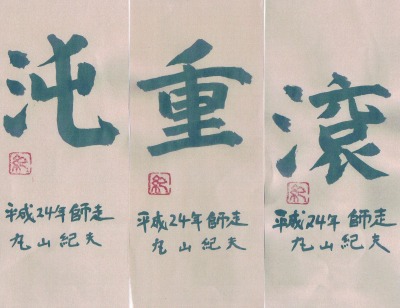 沌
紀
平成24年師走
丸山紀夫
重
紀
平成24年師走
丸山紀夫
滾
紀
平成24年師走
丸山紀夫